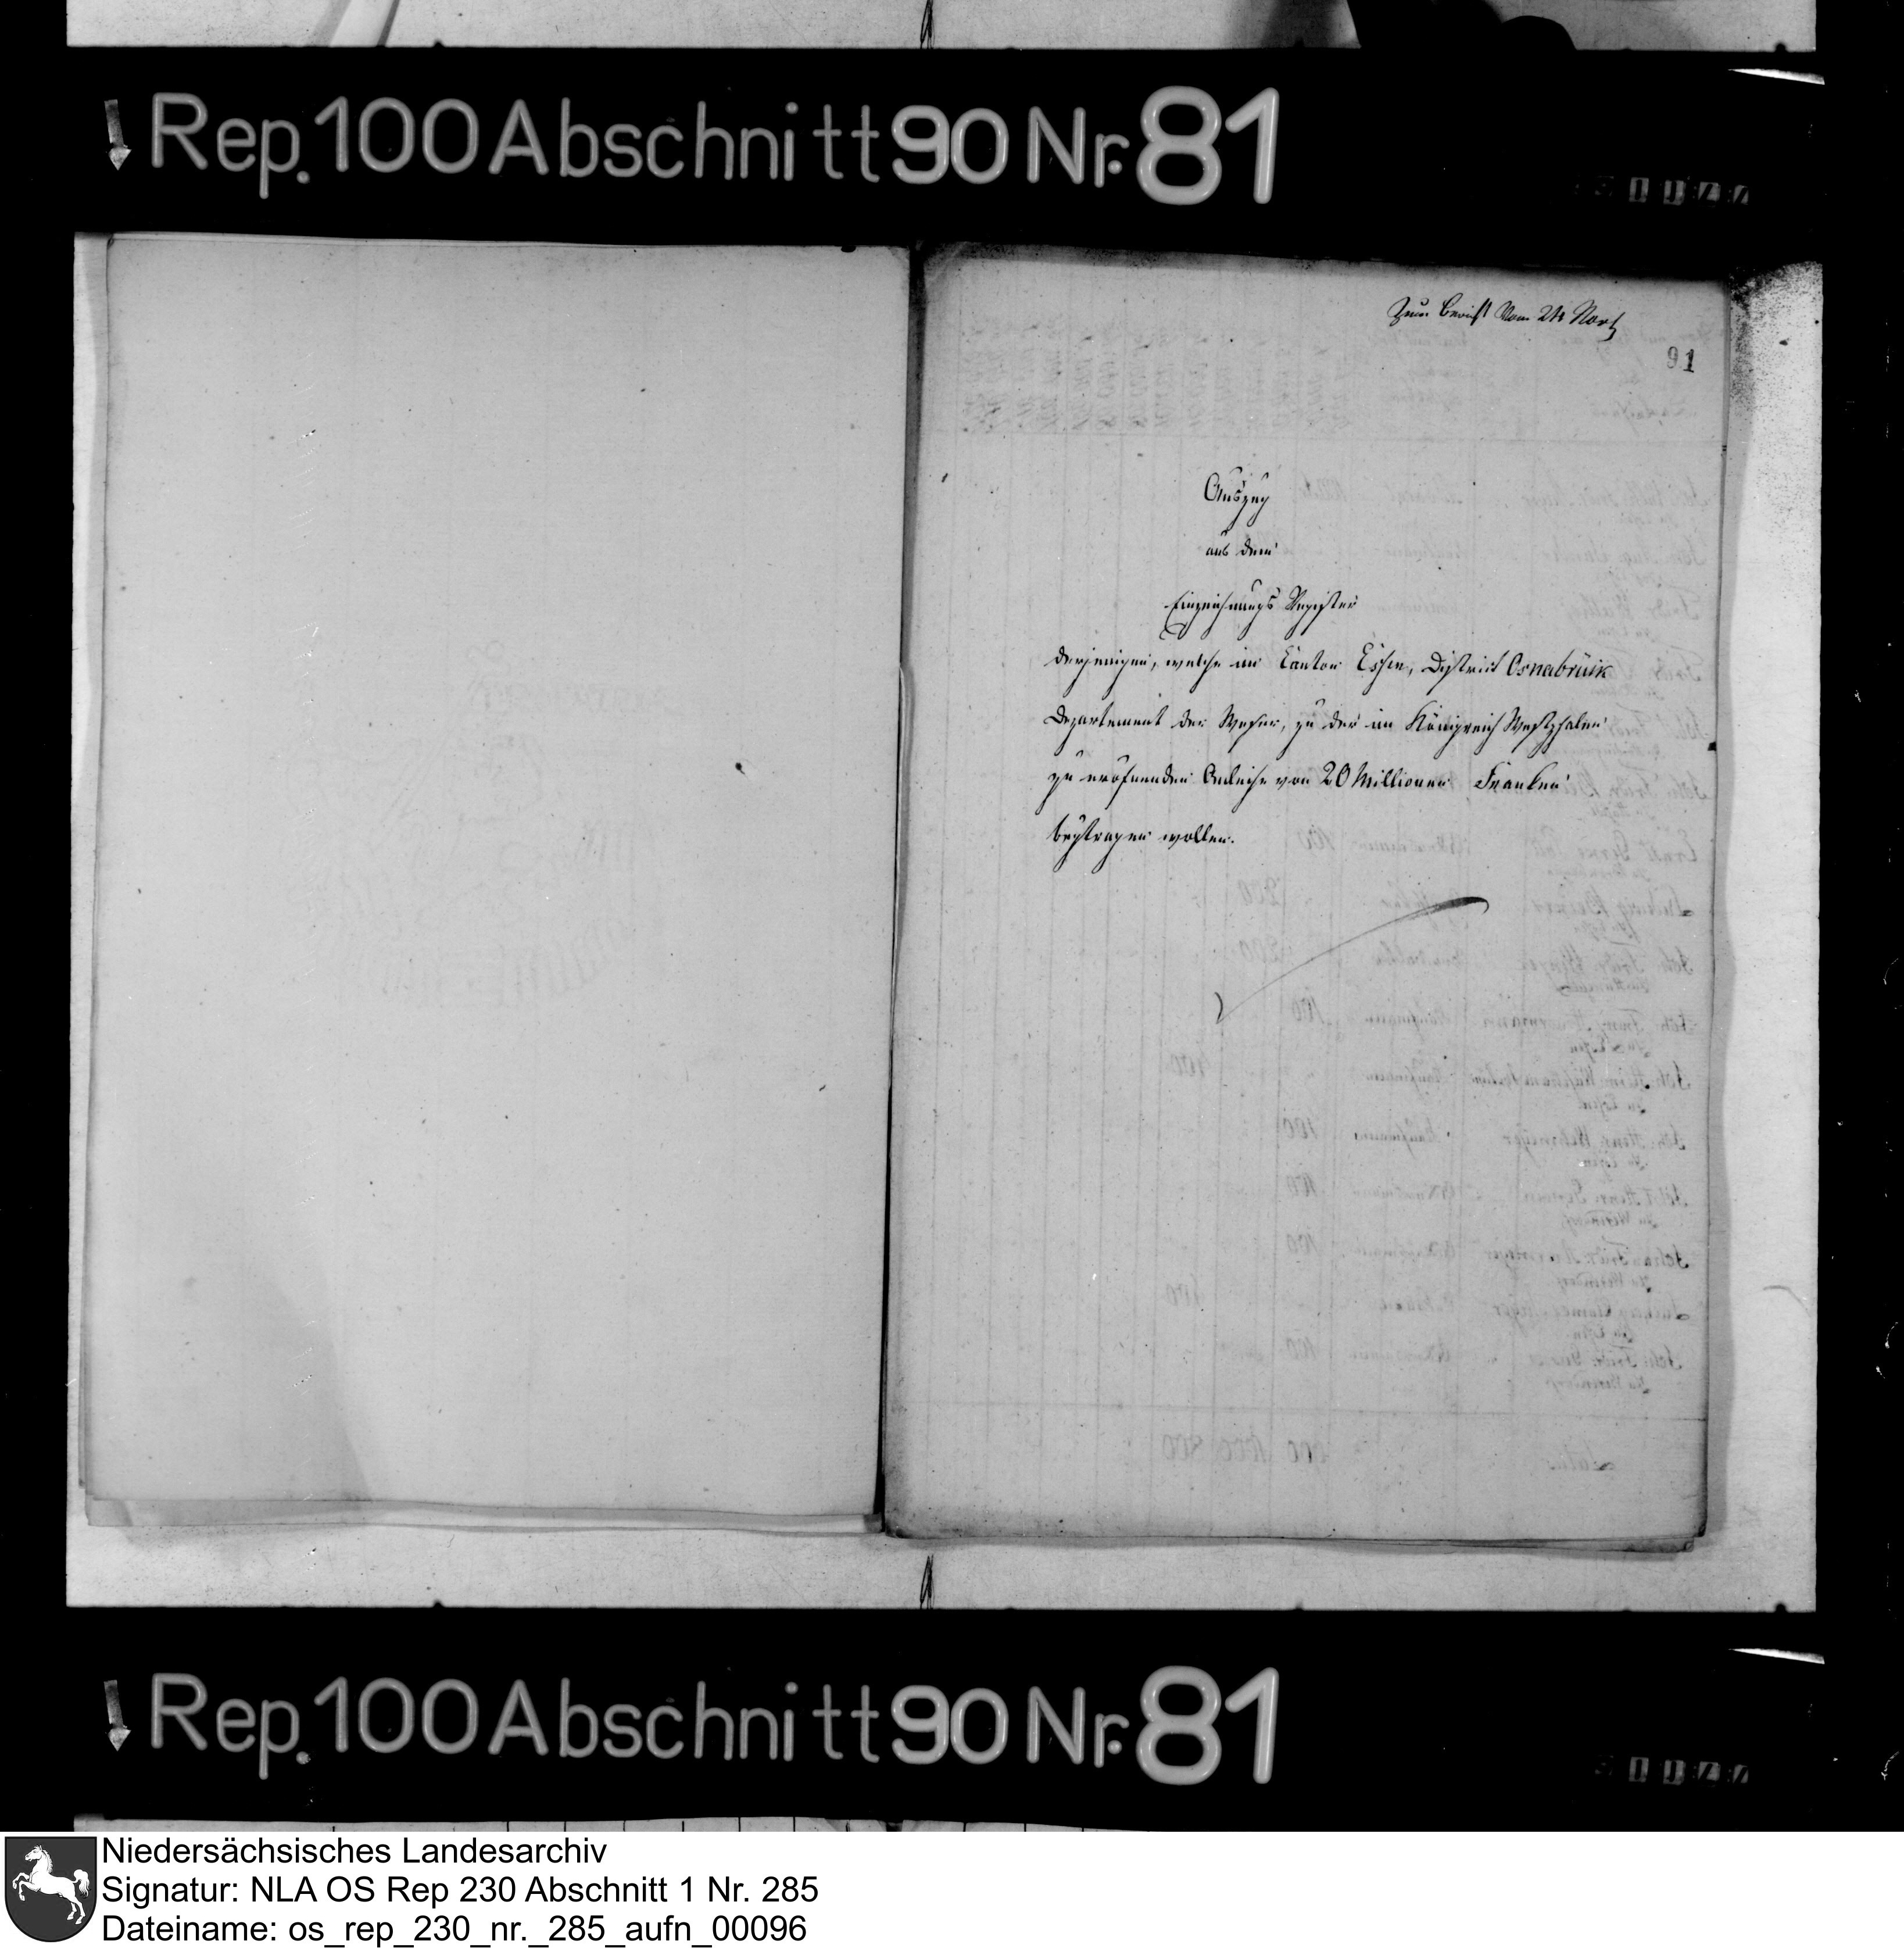 Rep. 100 Abschnitt 90 Nr. 81
Zum Bericht vom 24
91
Auszug
aus dem
Einzeichnungs Register
derjenigen, welche im Canton Essen, District Osnabrück
Departement der Weser, zu der im Königreich Westphalen
zu eröfnenden Anleihe von 20 Millionen Franken
beytragen wollen.
Rep. 100 Abschnitt 90 Nr. 81
Niedersächsisches Landesarchiv
Signatur: NLA OS Rep 230 Abschnitt 1 Nr. 285
Dateiname: os_rep_230_nr._285_aufn_00096